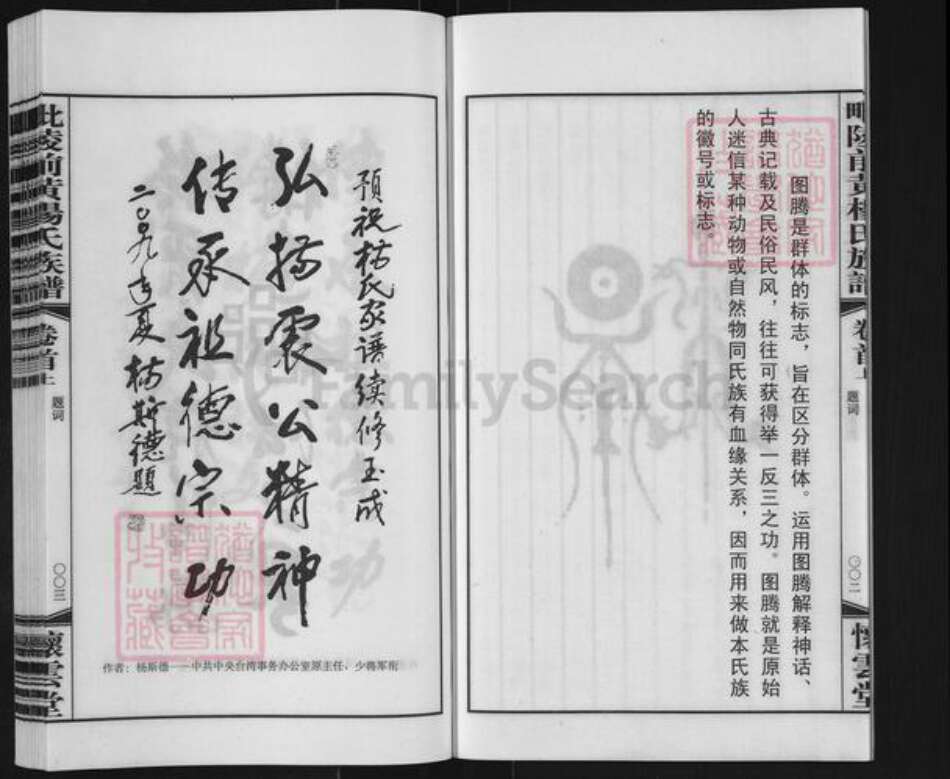 毗陵前黄楊氏族譜
卷首上
题词
〇〇二
懷雲堂
图腾是群体的标志，旨在区分群体。运用图腾解释神话、
古典记载及民俗民风，往往可获得举一反三之功。图腾就是原始
人迷信某种动物或自然物同氏族有血缘关系，因而用来做本氏族
的徽号或标志。
FamilySearch
预祝杨氏家谱续修玉成
弘扬震公精神
传承祖德宗功
二〇〇九年夏杨斯德题
作者：杨斯德——中共中央台湾事务办公室原主任、少将军衔
毗陵前黄楊氏族譜
卷首上
题词
〇〇三
懷雲堂